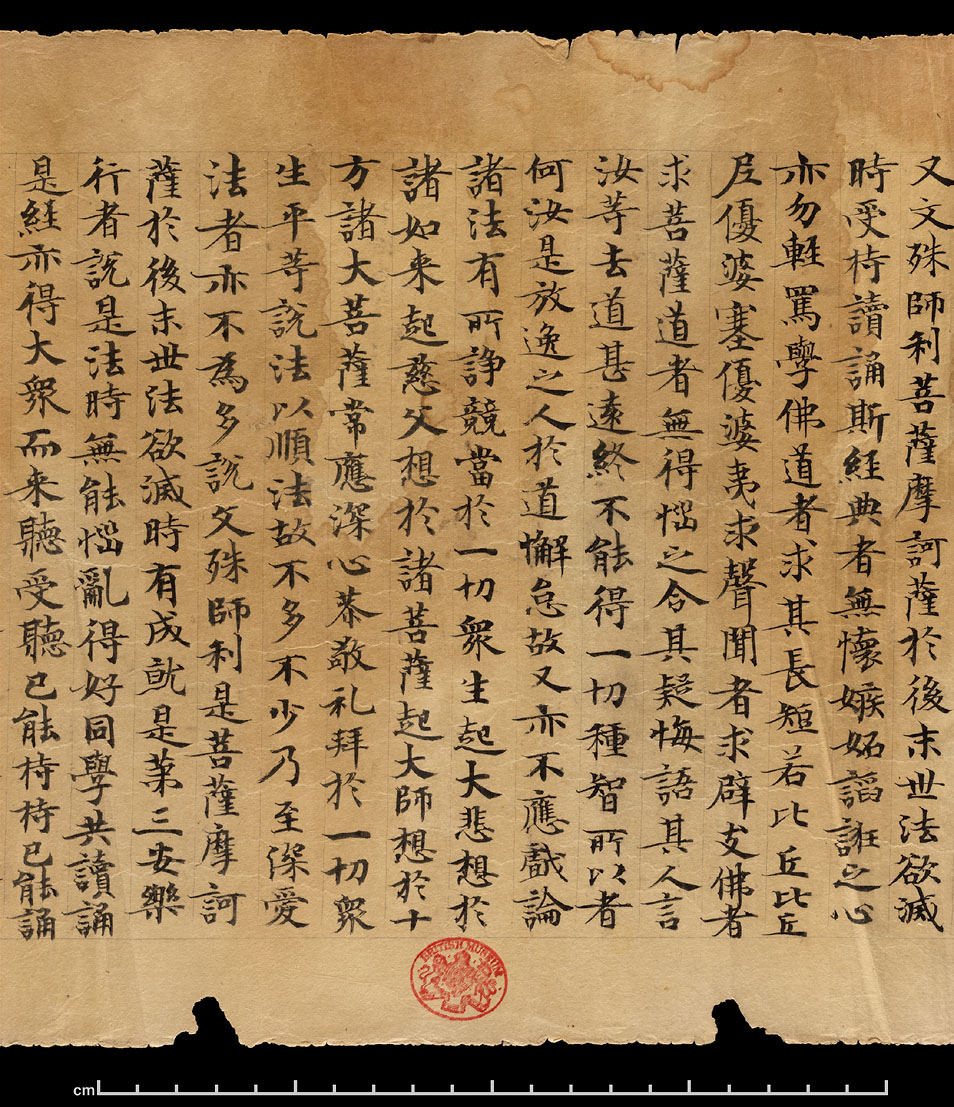 又文殊師利菩薩摩訶薩於後末世法欲滅
時受持讀誦斯經典者無懷嫉妬謟誑之心
亦勿輕罵學佛道者求其長短若比丘比丘
尼優婆塞優婆夷求聲聞者求辟支佛者
求菩薩道者無得惱之令其疑悔語其人言
汝等去道甚遠終不能得一切種智所以者
何汝是放逸之人於道懈怠故又亦不應戲論
諸法有所諍競當於一切衆生起大悲想於
諸如来起慈父想於諸菩薩起大師想於十
方諸大菩薩常應深心恭敬礼拜於一切衆
生平等說法以順法故不多不少乃至深愛
法者亦不為多說文殊師利是菩薩摩訶
薩於後末世法欲滅時有成就是第三安樂
行者說是法時無能惱亂得好同學共讀誦
是經亦得大衆而来聽受聽已能持持已能誦
BRITISH MUSEUM
cm